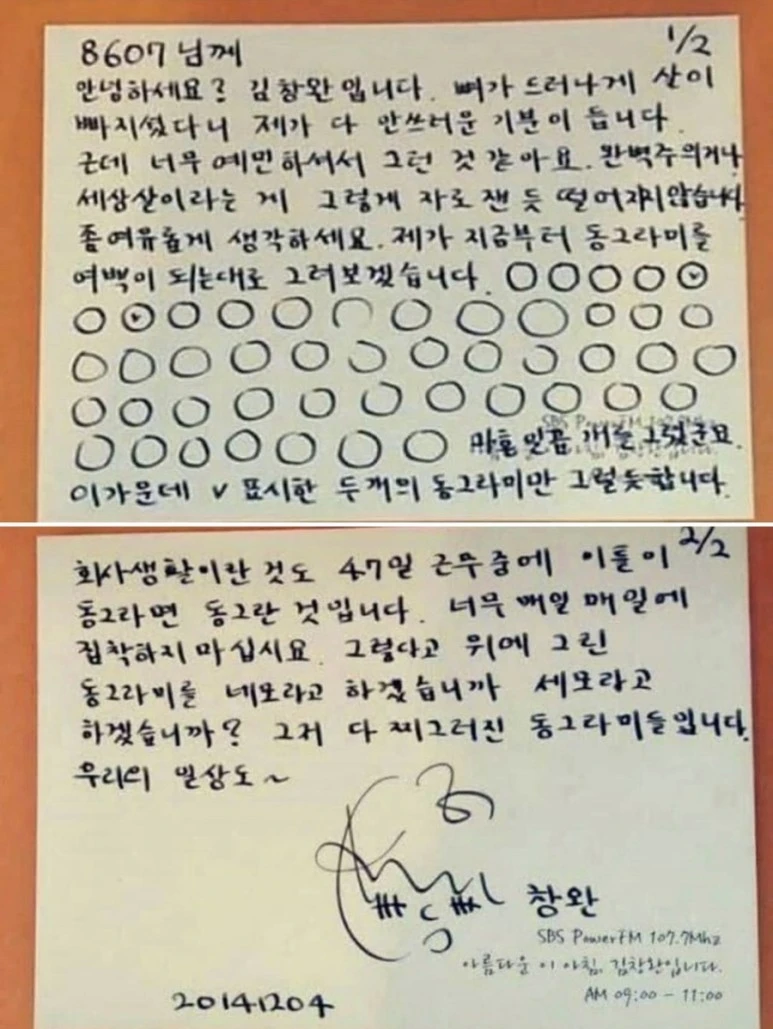 1/2
8607님께
안녕하세요? 김창완입니다. 뼈가 드러나게 살이
빠지셨다니 제가 다 안쓰러운 기분이 듭니다.
근데 너무 예민하셔서 그런 것 같아요. 완벽주의거나
세상살이라는 게 그렇게 자로 잰 듯 떨어지지 않습니다.
좀 여유롭게 생각하세요. 제가 지금부터 동그라미를
여백이 되는대로 그려보겠습니다.
SBS PowerFM 107.7Mhz
마흔 일곱 개를 그렸군요.
김창완입니다.
이 가운데 v 표시한 두개의 동그라미만 그럴듯합니다.
2/2
회사생활이란 것도 47일 근무 중에 이틀이
동그라면 동그란 것입니다. 너무 매일 매일에
집착하지 마십시요. 그렇다고 위에 그린
동그라미를 네모라고 하겠습니까 세모라고
하겠습니까? 그저 다 찌그러진 동그라미들입니다.
우리의 일상도~
창완
SBS PowerFM 107.7Mhz
아름다운 이 아침, 김창완입니다.
AM 09:00 - 11:00
20141204